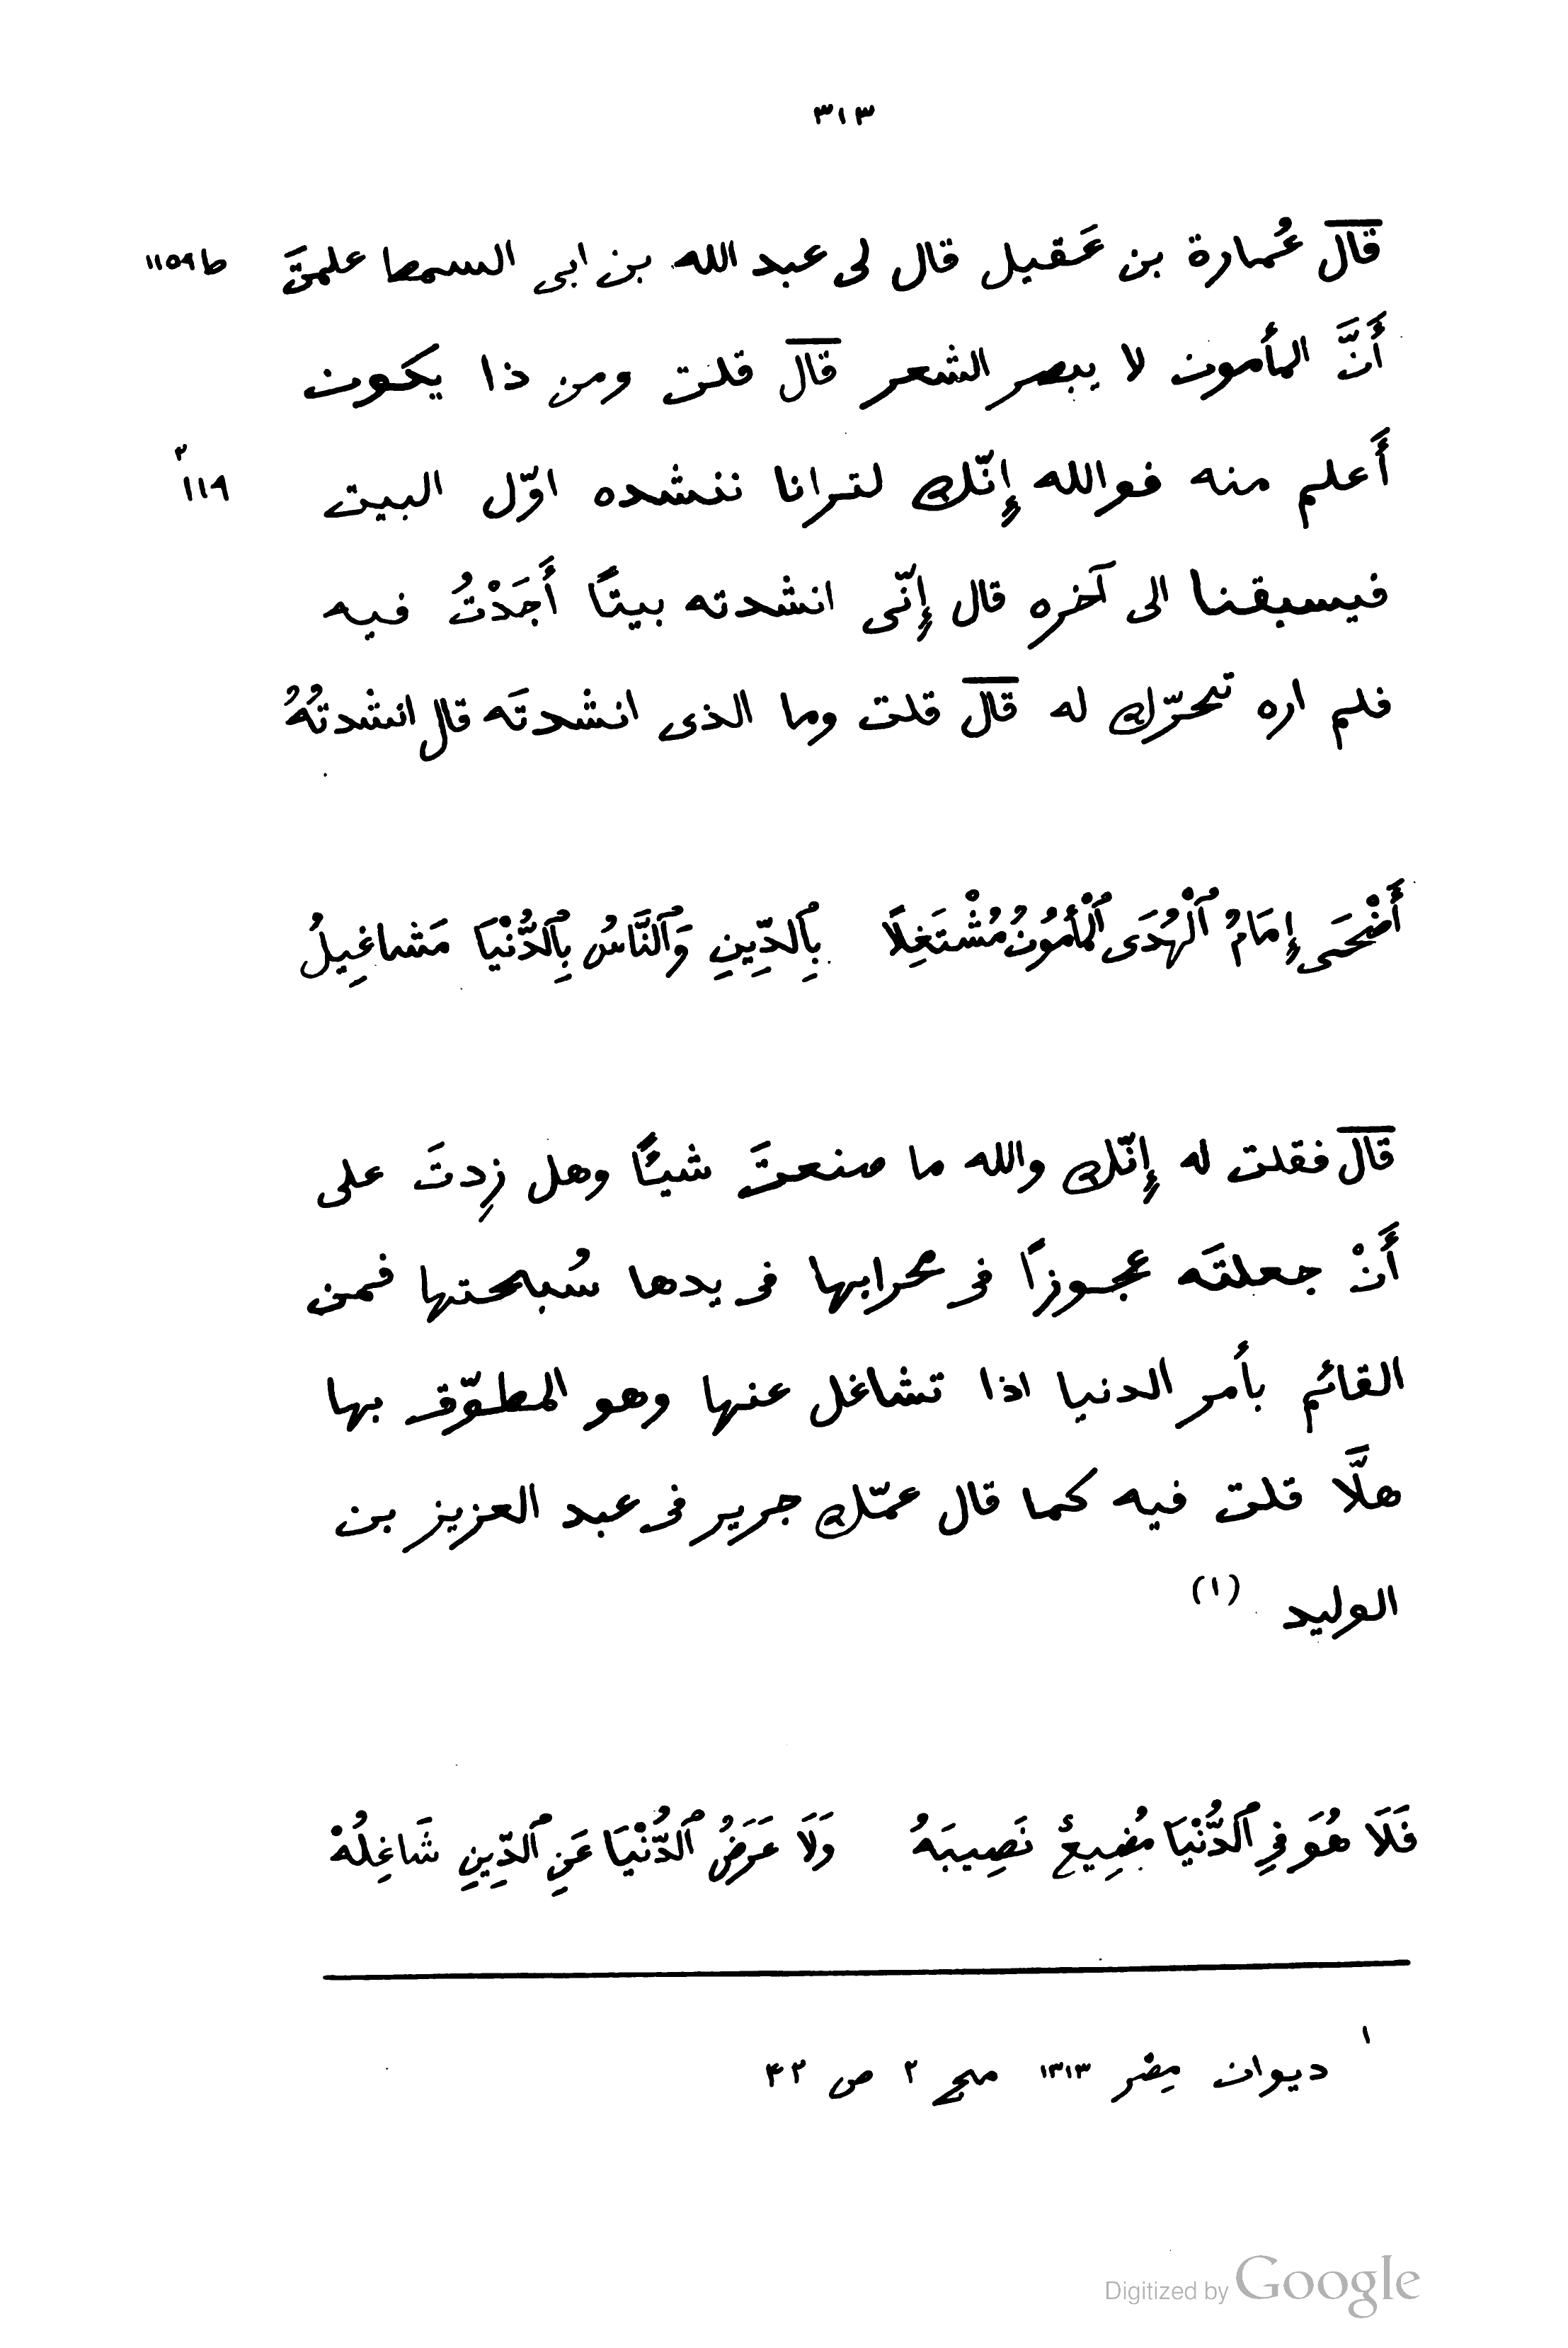 ٣١٣
قال عُمارة بن عَقيل قال لى عبد الله بن ابى السمط علمتَ ط ١١٥٩
أَنَّ المأمون لا يبصر الشعر قال قلت ومن ذا يكون
أَعلم منه فوالله إِنّك لترانا ننشده اوّل البيت ١١٩٢
فيسبقنا الى آخره قال إِنّى انشدته بيتًا أَجَدْتُ فيه
فلم اره تحرّك له قال قلت وما الذى انشدتَه قال انشدتُهُ
أَضْحَى إِمَامُ ٱلْهُدَى ٱلْمأْمُونُ مُشْتَغِلًا بِٱلدِّينِ وَٱلنَّاسُ بِٱلدُّنْيَا مَشاغِيلُ
قال فقلت له إِنّك والله ما صنعتَ شيئًا وهل زِدتَ على
أَنْ جعلتَه عجوزًا فى محرابها فى يدها سُبحتها فمن
القائم بأمر الدنيا اذا تشاغل عنها وهو المطوّق بها
هلَّا قلت فيه كما قال عمّك جرير فى عبد العزيز بن
الوليد (١)
فَلَا هُوَ فِى ٱلدُّنْيَا مُضِيعٌ نَصِيبَهُ وَلَا عَرَضُ ٱلدُّنْيَا عَنِ ٱلدِّينِ شَاغِلُهْ
١ ديوان مِصْر ١٣١٣ مج ٢ ص ٤٢
Digitized by Google